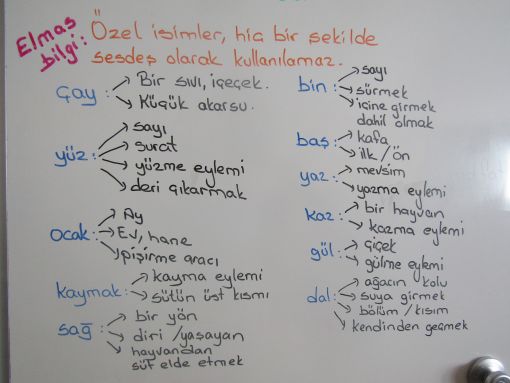 Elmas bilgi: Özel isimler, hiç bir şekilde
sesdeş olarak kullanılamaz.
Çay: → Bir sıvı, içeçek.
→ Küçük akarsu.
yüz: → sayı
→ surat
→ yüzme eylemi
→ deri çıkarmak
ocak: → Ay
→ Ev, hane
→ pişirme aracı
kaymak: → kayma eylemi
→ sütün üst kısmı
sağ: → bir yön
→ diri / yaşayan
→ hayvandan
süt elde etmek
bin: → sayı
→ sürmek
→ içine girmek
dahil olmak
baş: → kafa
→ ilk / ön
yaz: → mevsim
→ yazma eylemi
kaz: → bir hayvan
→ kazma eylemi
gül: → çiçek
→ gülme eylemi
dal: → ağacın kolu
→ suya girmek
→ bölüm / kısım
→ kendinden geçmek